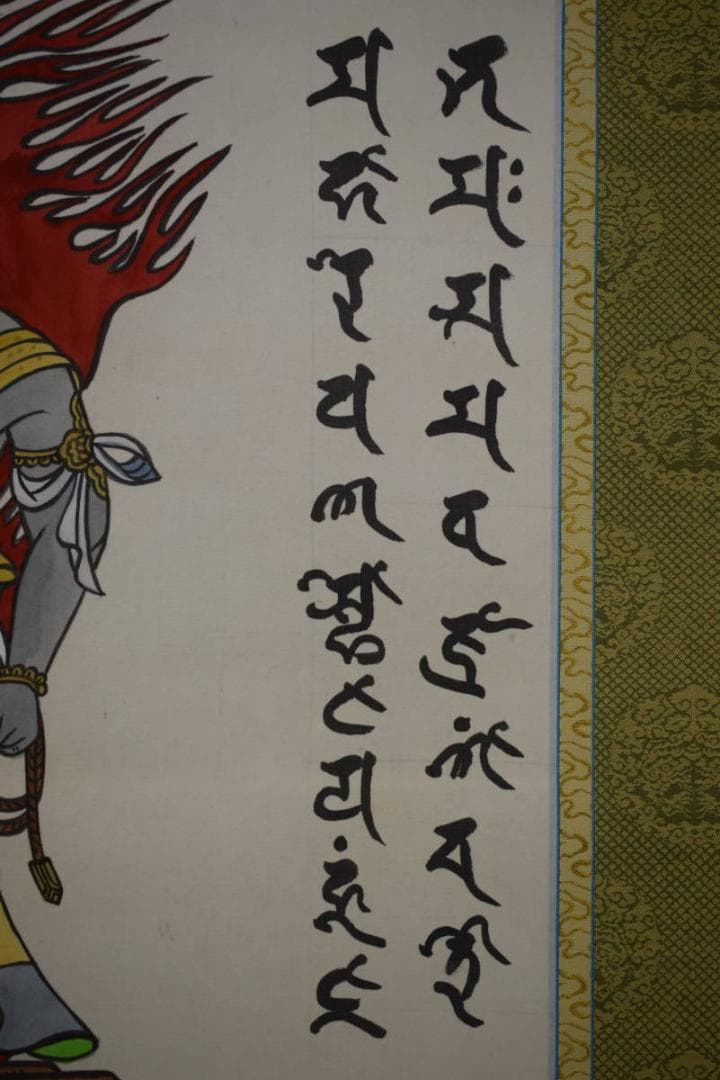 𑖡𑖦𑖾𑖭𑖦𑖪𑖕𑖿𑖨𑖜𑖽𑖓𑖜𑖿𑖚
𑖦𑖮𑖯𑖨𑖺𑖬𑖜𑖭𑖿𑖣𑖺𑖘𑖧𑖮𑖳𑖽𑖝𑖿𑖨